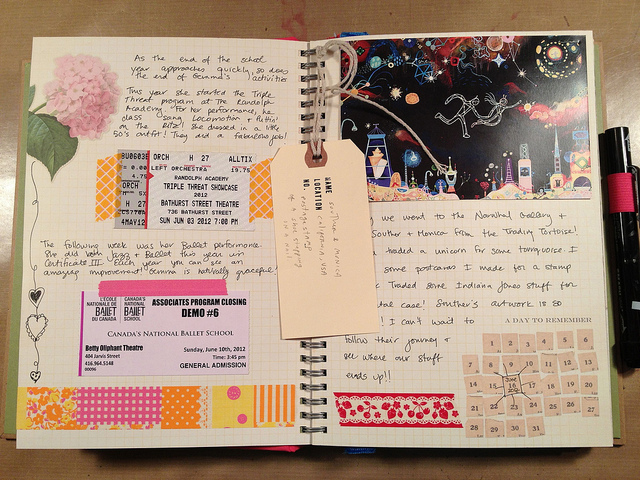 As the end of the school
year approaches quickly, so does
the end of Gemma's activities
This year she started the Triple
Threat program at The Randolph
Academy. For her performance, he
class sang Locomotion + Puttin'
on the Ritz! She dressed in a little
50's outfit! They did a fabulous job!
BU0603E ORCH H 27 ALLTIX
LEFT ORCHESTRA 19.75
RANDOLPH ACADEMY
4.75
TRIPLE THREAT SHOWCASE
ORCH
2012
H 27
BATHURST STREET THEATRE
736 BATHURST STREET
4MAY12
SUN JUN 03 2012 7:00 PM
The following week was her Ballet performance.
She did both Jazz + Ballet this year in
Certificate III. Each year you can see an
amazing improvement! Gemma is naturally graceful!
L'ÉCOLE NATIONALE DE BALLET DU CANADA
CANADA'S NATIONAL BALLET SCHOOL
ASSOCIATES PROGRAM CLOSING
DEMO #6
CANADA'S NATIONAL BALLET SCHOOL
Betty Oliphant Theatre
404 Jarvis Street
416.964.5148
00096
Sunday, June 10th, 2012
Time: 3:45 pm
GENERAL ADMISSION
NAME
LOCATION California USA
NO.
we went to the Narwhal Gallery +
Souther + Monica from the Trading Tortoise!
traded a unicorn for some turquoise. I
some postcards I made for a stamp
Traded some Indiana Jones stuff for
case! Souther's artwork is so
! I can't wait to
follow their journey +
see where our stuff
ends up!!
A DAY TO REMEMBER
1 2 3 4 5 6
7 8 9 10 11 12 13
14 15 June 16 2012 17 18 19 20
21 22 23 24 25 26 27
28 29 30 31